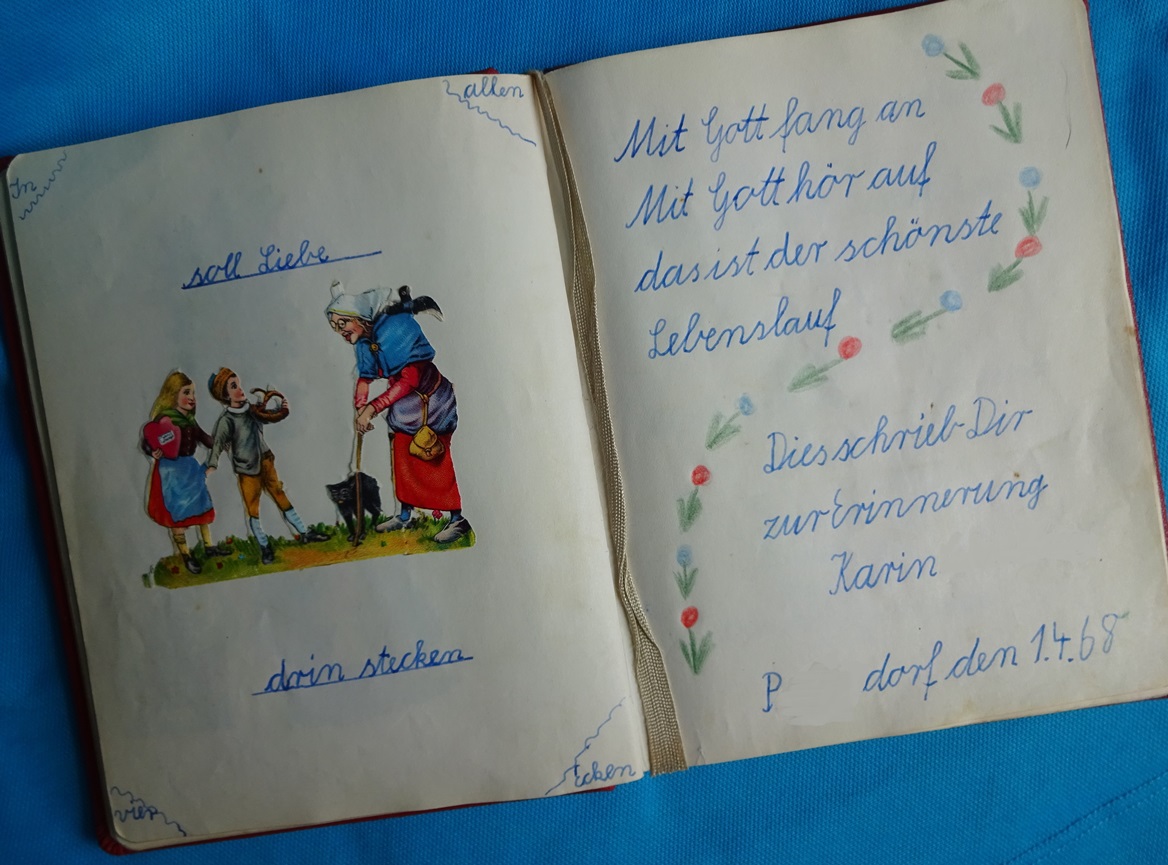 In
allen
vier
Ecken
soll Liebe
drin stecken
Mit Gott fang an
Mit Gott hör auf
das ist der schönste
Lebenslauf
Dies schrieb Dir
zur Erinnerung
Karin
P dorf den 1.4.68